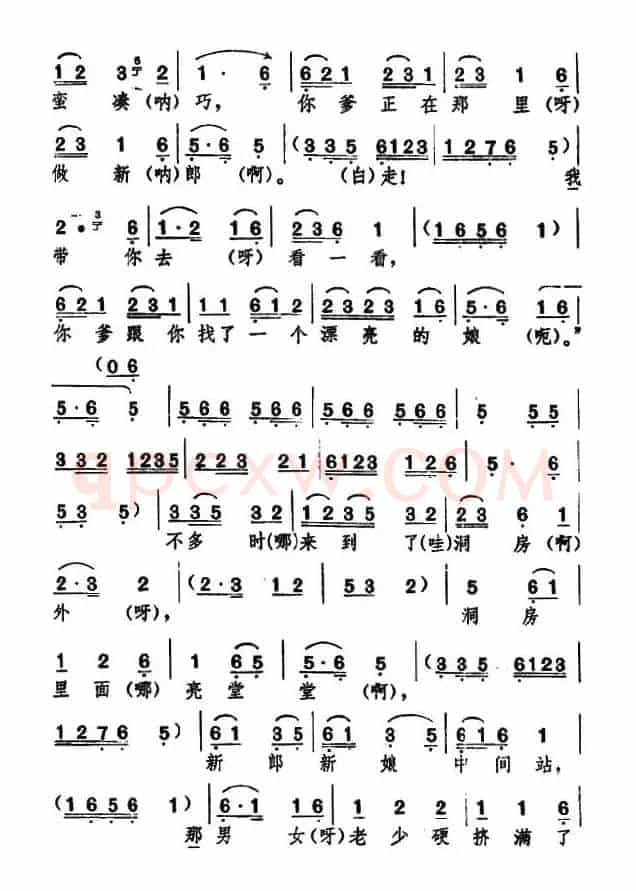 1 2 3 6 2 | 1 · 6 | 6 2 1 2 3 1 | 2 3 1 6 |
蛮 凑(呐) 巧, 你 爹 正 在 那 里(呀)
2 3 1 6 | 5 · 6 5 | (3 3 5 6123 | 1276 5) |
做 新(呐) 郎(啊)。 (白)走! 我
2 · 3 6 | 1 · 2 1 6 | 2 3 6 1 | (1656 1) |
带 你 去 (呀) 看 一 看,
6 2 1 2 3 1 | 1 1 6 1 2 | 2323 1 6 | 5 · 6 5 |
你 爹 跟 你 找 了 一 个 漂 亮 的 娘 (呃)。”
(0 6
5 · 6 5 | 566 566 | 566 566 | 5 55 |
332 1235 | 223 21 | 6123 126 | 5 · 6 |
qpcxw.COM
53 5) | 335 32 | 1235 32 | 23 6 1 |
不 多 时(哪) 来 到 了(哇) 洞 房(啊)
2 · 3 2 | (2 · 3 12 | 35 2) | 5 6 1 |
外 (呀), 洞 房
1 2 6 | 1 6 5 | 5 · 6 5 | (335 6123 |
里 面(哪) 亮 堂 堂 (啊),
1276 5) | 61 35 | 61 3 5 | 616 1 |
新 郎 新 娘 中 间 站,
(1656 1) | 6 · 1 16 | 1 2 2 | 1 6 1 |
那 男 女(呀) 老 少 硬 挤 满 了